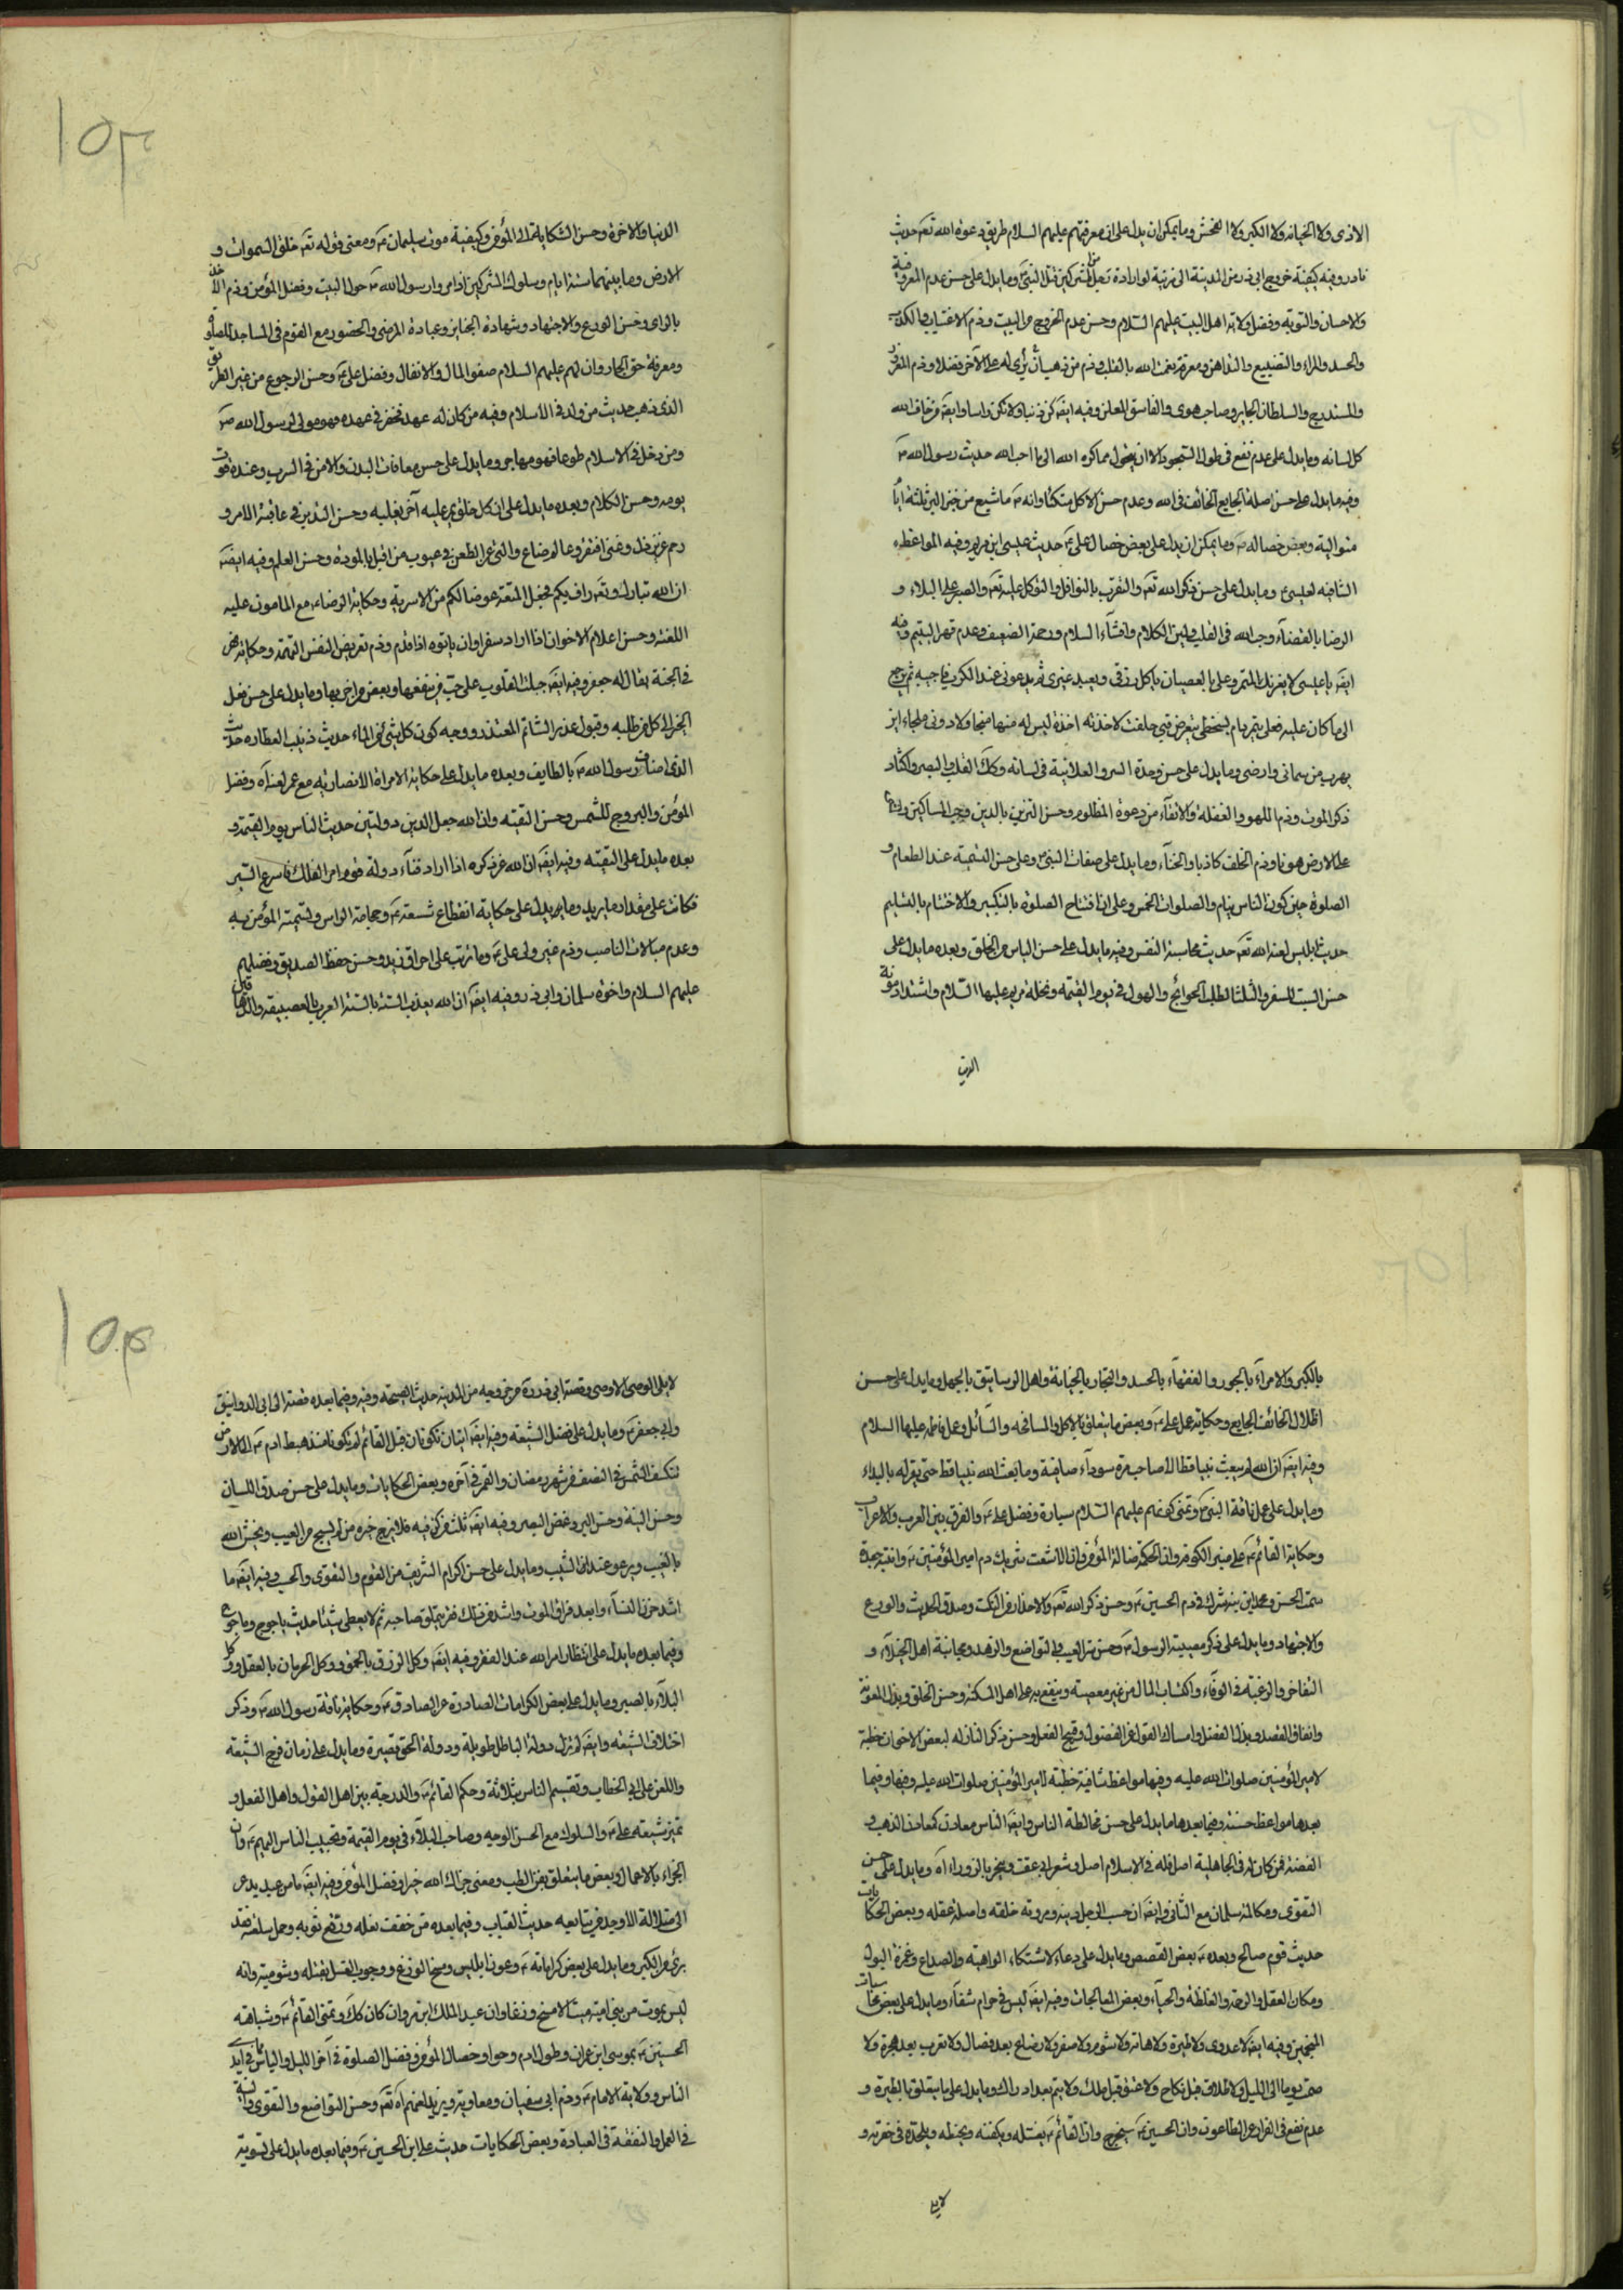 الاذى ولا الخيانه ولا الكبر ولا الفحش وما يمكن ان يدل على ان معرفتهم عليهم السلام طريق دعوة الله تعه حديث
نادر وفيه كيفية خروج ابى ذر من المدينة الى ربذة لو ارادة رجل من المشركين قتل النبى وما يدل على حسن عدم المعرفة وفيه
والاحسان والتوبه وفضل ولاية اهل البيت عليهم السلام وحسن عدم الخروج من البيت وذم الاغتياب والكذب
والحسد والمراء والتضييع والتداهن ومعرفة نعمت الله بالقلب وذم من ذهب ان يرى له على الاخر فضلا وذم المغرور
والمستدرج والسلطان الجاير وصاحب هوى والفاسق المعلن وفيه ايضه كن ذنبا ولا تكن راسا وايضه من خاف الله
كل لسانه وما يدل على عدم نفع فى طول السجود الا ان يتحول مما كره الله الى ما احب الله حديث رسول الله ص
وفيه ما يدل على حسن اصلة الجايع الخائف فى الله وعدم حسن الاكل متكئا وانه ص ما شبع من خبز البر ثلثة ايام
متوالية وبعض خصاله ص وما يمكن ان يدل على بعض خصال على ع حديث عيسى ابن مريم وفيه المواعظ
الشافيه لعيسى وما يدل على حسن ذكر الله تعه والتقرب بالنوافل والتوكل عليه تعه والصبر على البلاء و
الرضا بالقضآء وحب الله فى القلب ولين الكلام وافشآء السلام ورحمة الضعيف وعدم قهر اليتيم وفيه
ايضه يا عيسى لا يغرنك المتمرد على بالعصيان ياكل رزقى ويعبد غيرى ثم يدعونى عند الكرب فاجيبه ثم يرجع
الى ما كان عليه فعلى يتمرد ام لسخطى يتعرض فبى حلفت لاخذنه اخذة ليس له منها منجا ولا دونى ملجاء اين
يهرب من سمائى وارضى وما يدل على حسن وحدة السر والعلانية فى لسانه وكك القلب والبصر واكثار
ذكر الموت وذم اللهو والغفلة والاتقآء من دعوة المظلوم وحسن التزين بالدين وحب المساكين
على الارض هونا وذم الحلف كاذبا والخنآء وما يدل على صفات النبى وعلى حسن التسمية عند الطعام و
الصلوة حين كون الناس نيام والصلوات الخمس وعلى ان افتتاح الصلوة بالتكبير والاختتام بالتسليم
حديث ابليس لعنه الله تعه حديث محاسبة النفس وفيه ما يدل على حسن الياس من الخلق وبعده ما يدل على
حسن السبت للسفر والثلثا لطلب الحوائج والهول فى يوم القيمه ونخلة مريم عليها السلام واشتداد مؤنة
الدنيا
الدنيا والاخرة وحسن الشكاية الى المؤمن وكيفية موت سليمان ع ومعنى قوله تعه خلق السموات و
الارض وما بينهما ستة ايام وسلوك المشركين اذا مروا رسول الله ص حول البيت وفضل المؤمن وذم
بالراى وحسن الورع والاجتهاد وشهادة الجنايز وعيادة المرضى والحضور مع القوم فى المساجد للصلوة
ومعرفة حق الجار وان لهم عليهم السلام صفو المال والانفال وفضل على ع وحسن الرجوع من غير الطريق
الذى ذهب حديث من ولد فى الاسلام وفيه من كان له عهد فخفر فى عهده فهو مولى لرسول الله ص
ومن دخل فى الاسلام طوعا فهو مهاجر وما يدل على حسن معافات البدن والامن فى السرب وعنده قوت
يومه وحسن الكلام وبعده ما يدل على ان كل خلق يمر عليه آخر يغلبه وحسن التدبر فى عاقبة الامر و
رحم عزيز ذل وغنى افتقر وعالم ضاع والنهى عن الطعن فى عيوب من اقبل بالمودة وحسن العلم وفيه ايضه
ان الله تبارك وتعه راف بكم فجعل المتعة عوضا لكم من الاسربة وحكاية الرضاء مع المامون عليه
اللعنة وحسن اعلام الاخوان اذا اراد سفرا وان ياتوه اذا قدم وذم تعريض النفس التهمة وحكاية نهر
فى الجنة يقال له جعفر وفيه ايضه جبلت القلوب على حب من ينفعها وبغض من اضر بها وما يدل على حسن فعل
الخير الى كل من طلبه وقبول عذر الشاتم المعتذر ووجه كون كل شئ فى الماء حديث زينب العطاره حديث
الذى اضاف رسول الله ص بالطايف وبعده ما يدل على حكاية الامراة الانصاريه مع عمر لعن اه وفضل
المؤمن والبروج للشمس وحسن التقيه وان الله جعل الدين دولتين حديث الناس يوم القيمة و
بعده ما يدل على التقيه وفيه ايضه ان الله عز ذكره اذا اراد فنآء دولة قوم امر الفلك فاسرع السير
فكانت على مقدار ما يريد وما يدل على حكاية انقطاع شسعه ع وحجامة الراس وتسمية المؤمن به
وعدم مبالات الناصب وذم غير ولى على ع وما ترتب على احراق زيد وحسن حفظ الصديق وفضلهم
عليهم السلام واخوه سلمان وابى ذر وفيه ايضه ان الله يعذب الستة بالستة العرب بالعصبية والدهاقين
بالكبر والامرآء بالجور والفقهآء بالحسد والتجار بالخيانة واهل الرساتيق بالجهل وما يدل على حسن
اظلال الخائف الجايع وحكاية عمل على ع وبعض ما يتعلق بالاكل والمسافحه والسائل وعمل فاطمه عليها السلام
وفيه ايضه ان الله لم يبعث نبيا قط الا صاحب مرة سوداء صافية وما بعث الله نبيا قط حتى يقر له بالبداء
وما يدل على عمل ناقة النبى ص وتمنى كونهم عليهم السلام سيارة وفضل على ع والفرق بين العرب والاعراب
وحكاية القائم ع على منبر الكوفه وان الحكمة ضالة المؤمن وان الاشعث شريك دم امير المؤمنين ع وابنته جعدة
سمت الحسن ومحمد ابنه شرك فى دم الحسين ع وحسن ذكر الله تعه والاحذار من النكث وصدق الحديث والورع
والاجتهاد وما يدل على ذكر مصيبة الرسول ص وحسن ستر العيب والتواضع والزهد ومجانبة اهل الخيلآء و
التفاخر والرغبة فى الوفاء واكتساب المال من غير معصيته وينفع به على اهل المسكنه وحسن الخلق وبذل المعونة
وانفاق القصد وبذل الفضل وامساك القول عن الفضول وقبيح الفعل وحسن ذكر النازله لبعض الاخوان خطبة
لامير المؤمنين صلوات الله عليه وفيها مواعظ شافية خطبة لامير المؤمنين صلوات الله عليه وفيها وفيما
بعدها مواعظ حسنه وفيما بعدها ما يدل على حسن مخالطة الناس وايضه الناس معادن كمعادن الذهب و
الفضة فمن كان له فى الجاهلية اصل فله فى الاسلام اصل وشعر ابى عقب وينحر بالزوراء اه وما يدل على حسن
التقوى ومكالمة سلمان مع الثانى وايضه ان حسب الرجل دينه ومروته خلقه واصله عقله وبعض الحكايات
حديث قوم صالح وبعده ع بعض القصص وما يدل على دعاء لاشتكاء الواهنه والصداع وغمزة البول
ومكان العقل والرحمة والغلظة والحيآء وبعض المعالجات وفيه ايضه ليس فى حرام شفآء وما يدل على بعض
المنجمين وفيه ايضه لا عدوى ولا طيرة ولا هامة ولا شوم ولا صفر ولا رضاع بعد فصال ولا تعرب بعد هجرة ولا
صمت يوما الى الليل ولا طلاق قبل نكاح ولا عتق قبل ملك ولا يتم بعد ادراك وما يدل على ما يتعلق بالطيرة و
عدم نفع فى الفرار عن الطاعون وان الحسين ع يخرج وان القائم ع يغسله ويكفنه ويحنطه ويلحده فى حفرته و
لا يلى
لا يلى الوصى الا وصى وقصة ابى ذر رة من خروجه من المدينه حديث الصيحة وفيه وفيما بعده قصة الى ابى الدوانيق
وابى جعفر ع وما يدل على فضل الشيعه وفيه ايضه ايتان تكونان قبل القائم لم تكونا منذ هبط ادم ع الى الارض
تنكسف الشمس فى النصف من شهر رمضان والقمر فى آخره وبعض الحكايات وما يدل على حسن صدق اللسان
وحسن النية وحسن البر وغض البصر وفيه ايضه ثلث من كن فيه فلا يرج خيره من لم يستح من العيب ويخش الله
بالغيب ويرعو عند الشيب وما يدل على حسن اكرام الشريف من القوم والتقوى والحسب وفيه ايضه ما
اشد حزن النسآء وابعد فراق الموت واشد من ذلك فقر يتملق صاحبه ثم لا يعطى شيئا حديث ياجوج وماجوج
وفيما بعده ما يدل على انتظار امر الله عند الفقر وفيه ايضه وكل الرزق بالحمق ووكل الحرمان بالعقل ووكل
البلآء بالصبر وما يدل على بعض الكرامات الصادره عن الصادق ع وحكاية ناقة رسول الله ص وذكر
اختلاف الشيعه وايضه لم تزل دولة الباطل طويلة ودولة الحق قصيرة وما يدل على زمان فرج الشيعه
واللعن على ابى الخطاب وتقسيم الناس بثلاثة وحكم القائم ع والدرجة بين اهل القول واهل الفعل و
تميز شيعة على ع والسلوك مع الحسن الوجه وصاحب البلآء فى يوم القيمة وتحبيب الناس اليهم ع وان
الجزاء بالاعمال وبعض ما يتعلق بفن الطب ومعنى جزاك الله خيرا وفضل المؤمن وفيه ايضه ما من عبد يدعو
الى ضلالة الا وجد من يتابعه حديث القباب وفيما بعده من خصف نعله ورقع ثوبه وحمل سلعته فقد
برئ من الكبر وما يدل على بعض كراماته ع وعون ابليس ومسخ الوزغ ووجوب الغسل بقتله وشوميته وانه
ليس يموت من بنى امية ميت الا مسخ وزغا وان عبد الملك ابن مروان كان كك وتمنى القائم ع وشباهة
الحسين ع بموسى ابن عمران وطول ادم وحوا وخصال المؤمن وفضل الصلوة فى آخر الليل والياس مما فى ايدى
الناس وولاية الامام ع وذم ابى سفيان ومعاوية ويزيد لعنهم اه تعه وحسن التواضع والتقوى والنية
فى العمل والتفقه فى العبادة وبعض الحكايات حديث على ابن الحسين ع وفيما بعده ما يدل على تسوية